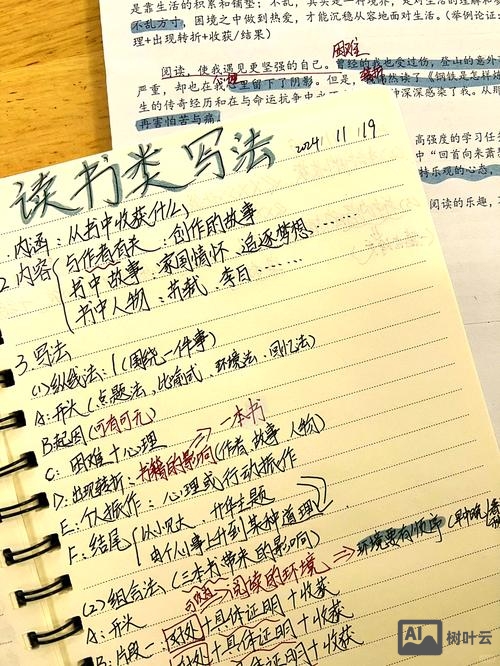 是靠生活的积累和铺垫；不乱，其实是一种境界，是对生活的理解和
不乱方寸，困境之中做到热爱，才能沉稳从容地面对生活。（举例论证
理+出现转折+收获/结果）
困难
阅读，使我遇见更坚强的自己。曾经的我也受过伤，登山的意外
严重，却也在我心里留下了阴影。但是，我偶然读了《钢铁是怎样
生的传奇经历和在与命运抗争中 深深感染了我。从那
再害怕苦与痛
高强度的学习任
中“回首向来萧
持乐观的心态，
阅读的乐趣，
读书类写法 2024 11 19
1. 内涵：从书中收获(什么)
2. 内容 与作者有关：创作的故事
书中故事：家国情怀、追逐梦想……
书中人物：苏轼、李白……
3. 写法
(1) 纵线法：1(围绕一件事)
A：开头（点题法、比喻式、环境法、回忆法）
B起因(可有可无)
一本书
C：困难+心理
D：出现转折：书籍的影响(作者、故事、人物)
E：个人振作：心理或行动振作
F：结尾 从小见大，升华主题
由个人小事上升到某种道理
(2) 组合法（三本书带来的影响）
阅读的环境 ⇒ 环境要有顺序
A：开头
B：片段一：困处+具体证明+收获
+具体证明+收获
树叶云